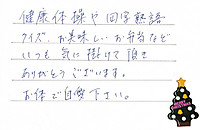 健康体操や四字熟語
クイズ、お美味しいお弁当など
いつも気に掛けて頂き
ありがとうございます。
お体ご自愛下さい。